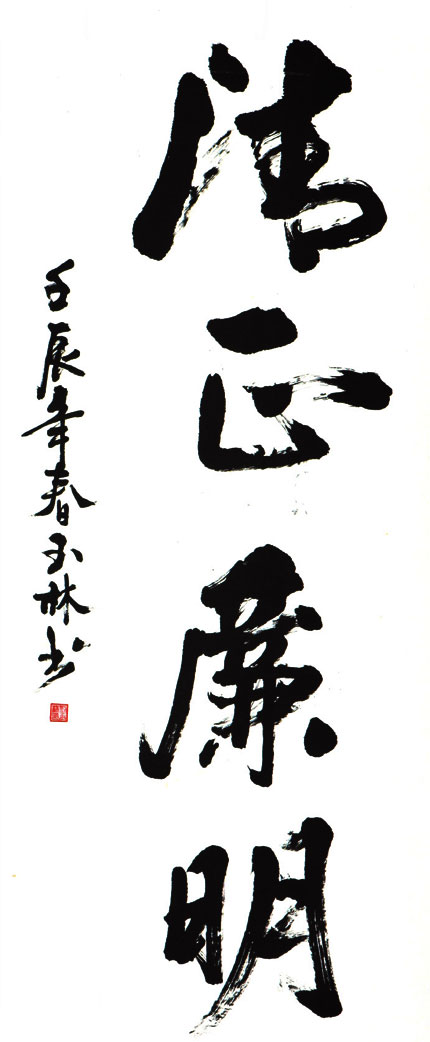 清正廉明
壬辰年春玉林书